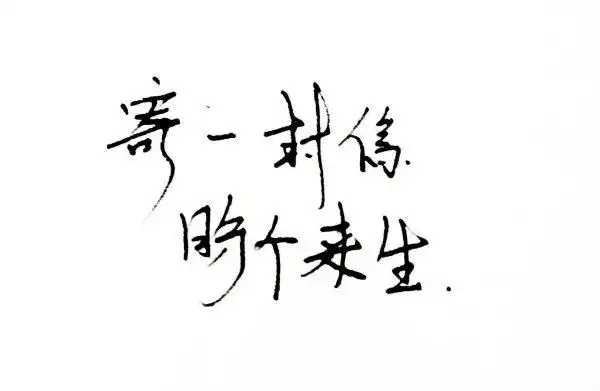 寄一封信.
盼个来生.